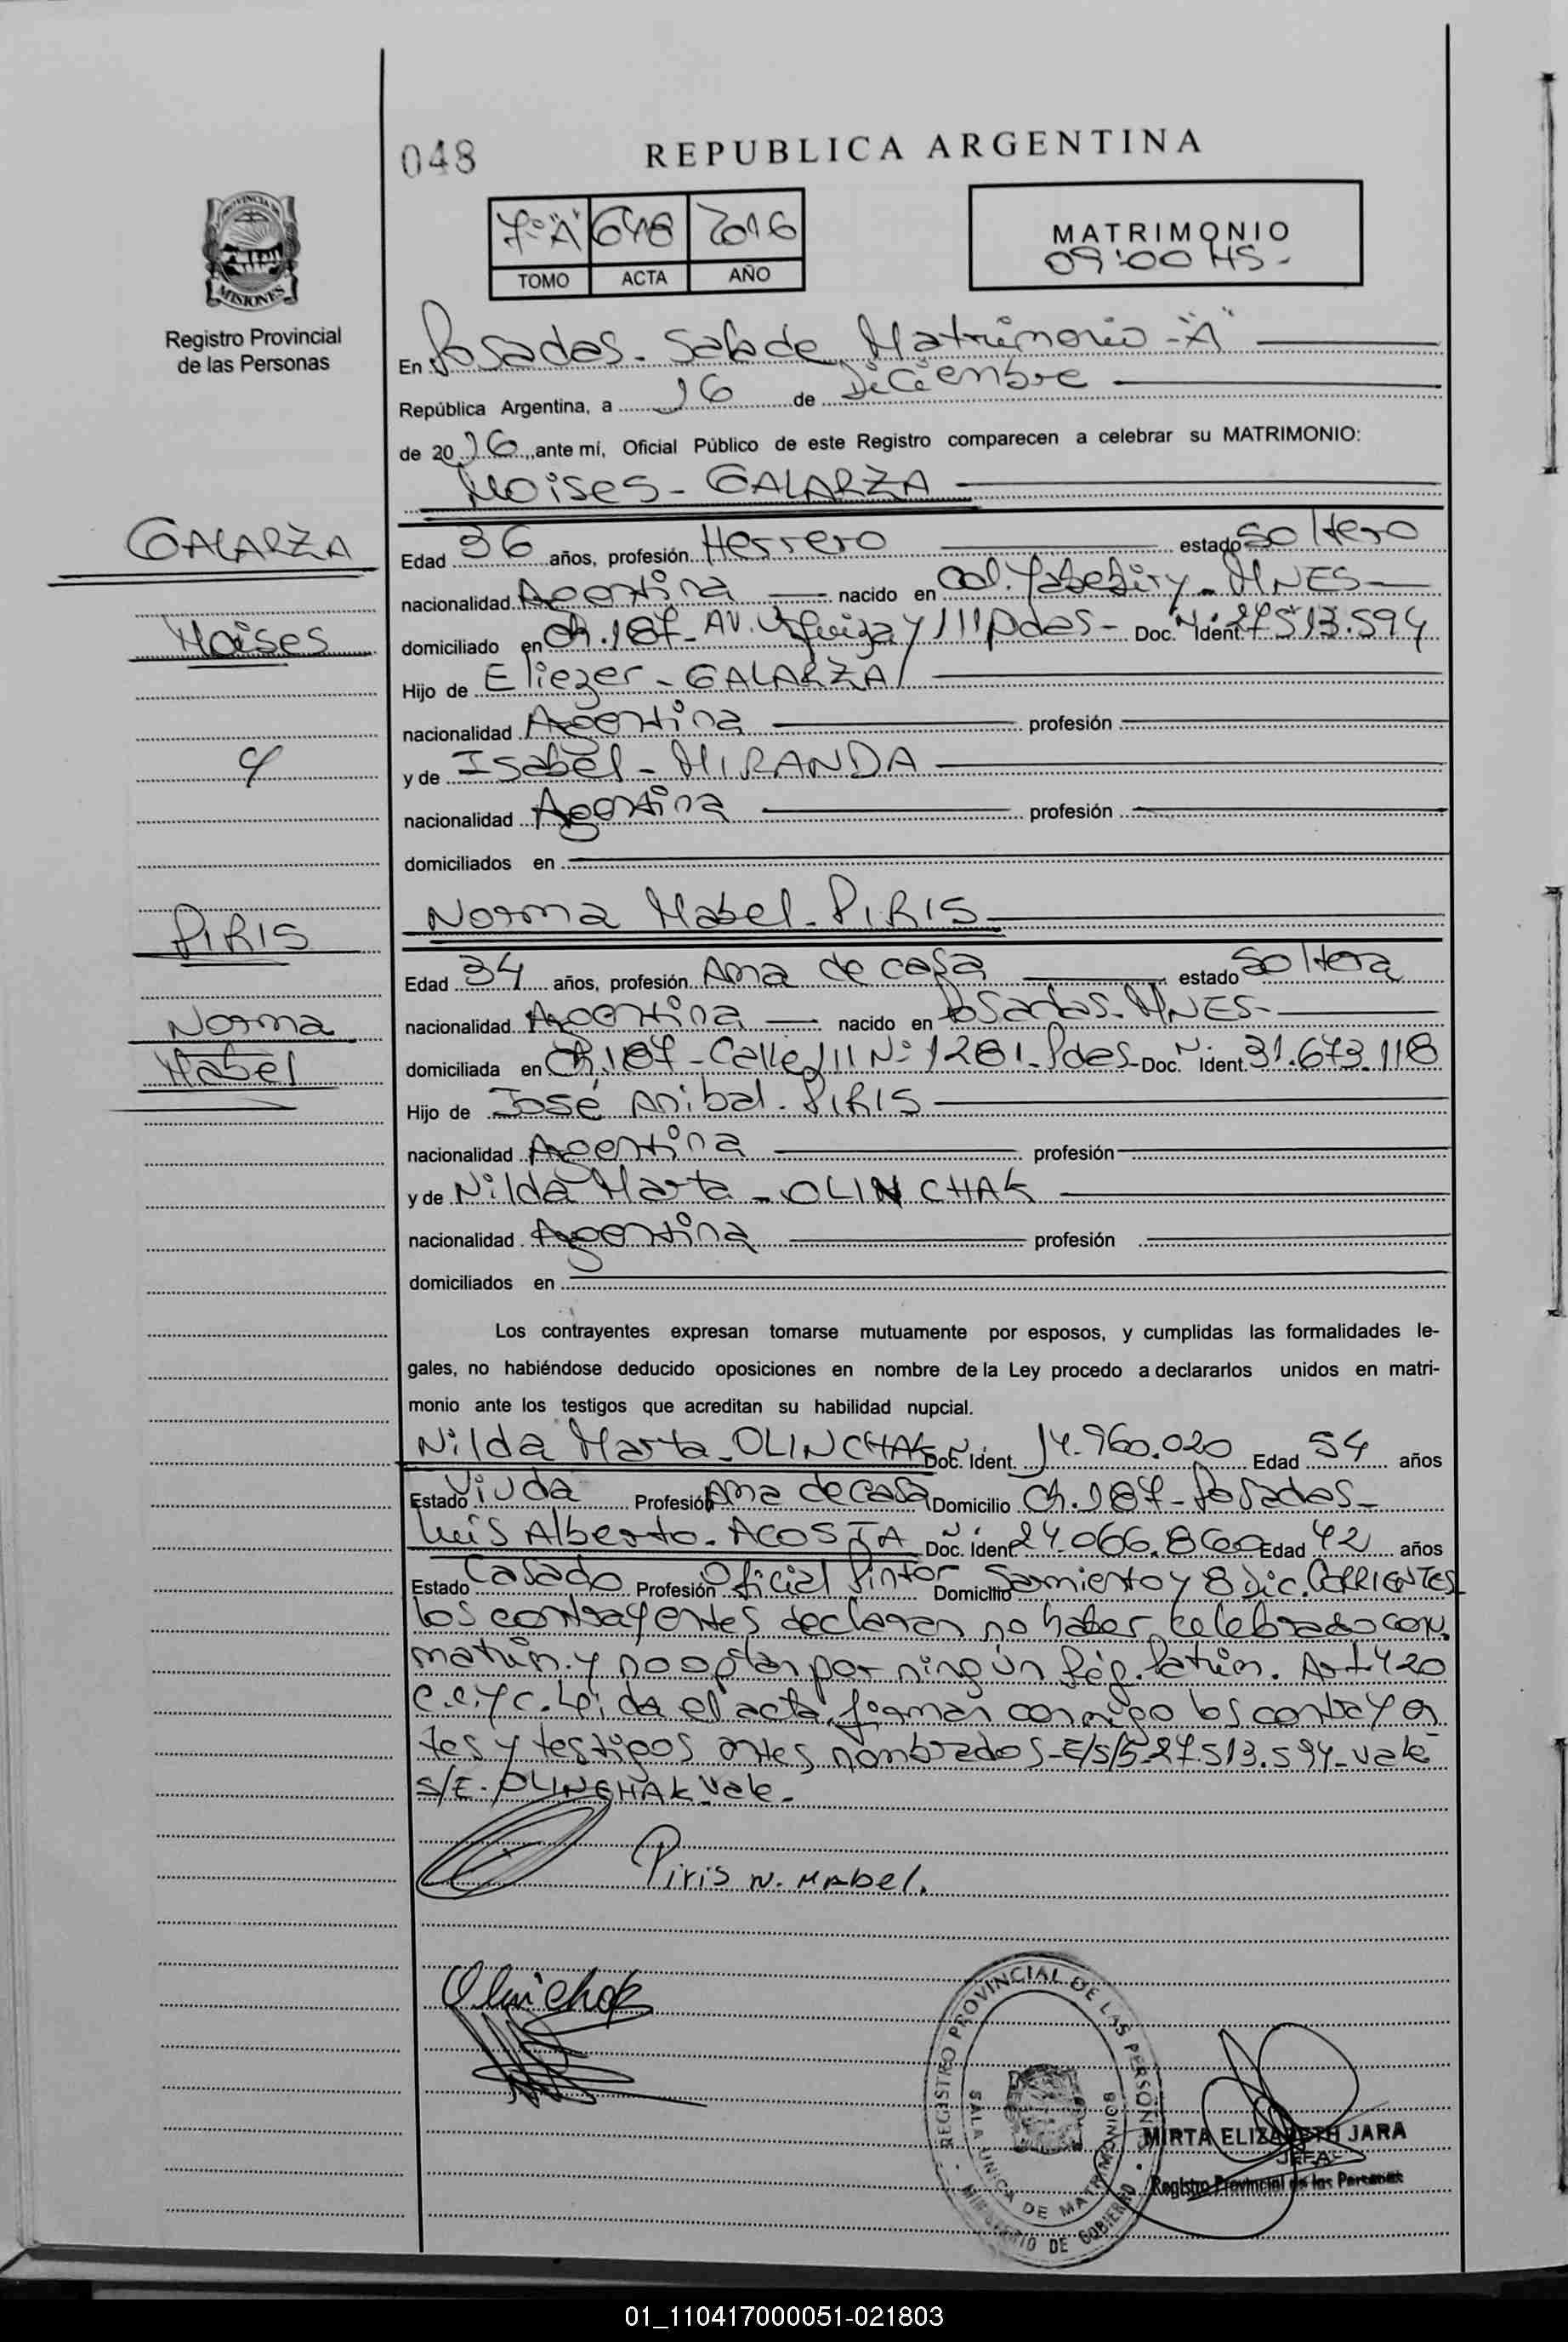 048
REPUBLICA ARGENTINA
7º"A" 648 2016
TOMO ACTA AÑO
MATRIMONIO
09:00 HS-
PROVINCIA DE
MISIONES
Registro Provincial
de las Personas
En Posadas. Sala de Matrimonio -"A"
República Argentina, a 16 de Diciembre
de 20 16 ante mí, Oficial Público de este Registro comparecen a celebrar su MATRIMONIO:
Moises - GALARZA
GALARZA
Edad 36 años, profesión Herrero estado soltero
nacionalidad Argentina nacido en Col. Yabebiry - MNES-
Moises
domiciliado en Ch. 187 - AV. Urquiza y 111 Pdas - Doc. Nº Ident. 27513.594
Hijo de Eliezer - GALARZA
nacionalidad Argentina profesión
y
y de Isabel - MIRANDA
nacionalidad Argentina profesión
domiciliados en
PIRIS
Norma Mabel - PIRIS
Edad 34 años, profesión Ama de casa estado soltera
Norma
nacionalidad Argentina nacido en Posadas - MNES-
Mabel
domiciliada en Ch. 187 - Calle 111 Nº 1281 - Pdas - Doc. Nº Ident. 31.673.118
Hijo de José Anibal - PIRIS
nacionalidad Argentina profesión
y de Nilda Marta - OLINCHAK
nacionalidad Argentina profesión
domiciliados en
Los contrayentes expresan tomarse mutuamente por esposos, y cumplidas las formalidades le-
gales, no habiéndose deducido oposiciones en nombre de la Ley procedo a declararlos unidos en matri-
monio ante los testigos que acreditan su habilidad nupcial.
Nilda Marta - OLINCHAK Doc. Ident. 14.960.020 Edad 54 años
Estado Viuda Profesión Ama de casa Domicilio Ch. 187 - Posadas -
Luis Alberto - ACOSTA Doc. Ident. 24.066.860 Edad 42 años
Estado Casado Profesión Oficial Pintor Domicilio Sarmiento y 8 Dic. CORRIENTES
los contrayentes declaran no haber celebrado conv.
matrim. y no optan por ningún Rég. Patrim. Art. 420
C.C.y C. Leída el acta, firman conmigo los contrayen
tes y testigos antes nombrados - E/S/5-27.513.594 - vale
S/E. OLINCHAK vale -
Piris N. Mabel.
Olinchak
REGISTRO PROVINCIAL DE LAS PERSONAS
SALA UNICA DE MATRIMONIOS
MINISTERIO DE GOBIERNO
MIRTA ELIZABETH JARA
JEFA
Registro Provincial de las Personas
01_110417000051-021803